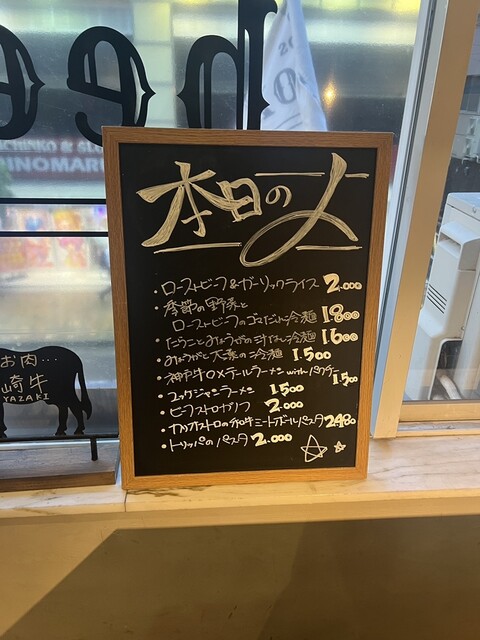 beef
CHINKO & SL
PINOMARU
お肉…
崎牛
YAZAKI
本日の〆
・ローストビーフ&ガーリックライス 2.000
・季節の野菜と
ローストビーフのゴマだれ冷麺 1800
・たらことみょうがの汁なし冷麺 1600
・みょうがと大葉の冷麺 1.500
・神戸牛のテールラーメン with パクチー 1.500
・ユッケジャンラーメン 1500
・ビーフストロガノフ 2.000
・カリオストロの和牛ミートボールパスタ 2480
・トリッパのパスタ 2.000